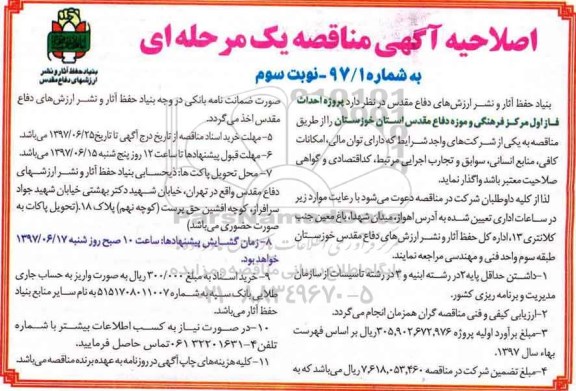 اصلاحیه آگهی مناقصه یک مرحله ای
به شماره ۹۷/۱-نوبت سوم
بنیاد حفظ آثار و نشر
ارزشهای دفاع مقدس
بنیاد حفظ آثار و نشر ارزش‌های دفاع مقدس در نظر دارد پروژه احداث
فاز اول مرکز فرهنگی و موزه دفاع مقدس استان خوزستان را از طریق
مناقصه به یکی از شرکت‌های واجد شرایط که دارای توان مالی، امکانات
کافی، منابع انسانی، سوابق و تجارب اجرایی مرتبط، کد اقتصادی و گواهی
صلاحیت معتبر باشد واگذار نماید.
لذا از کلیه داوطلبان شرکت در مناقصه دعوت می‌شود با رعایت موارد زیر
در ساعات اداری تعیین شده به آدرس اهواز، میدان شهدا، باغ معین جنب
کلانتری ۱۳، اداره کل حفظ آثار و نشر ارزش‌های دفاع مقدس خوزستان
طبقه سوم واحد فنی و مهندسی مراجعه نمایند.
۱-داشتن حداقل پایه ۲ در رشته ابنیه و ۳ در رشته تاسیسات از سازمان
مدیریت و برنامه ریزی کشور.
۲-ارزیابی کیفی و فنی مناقصه گران همزمان انجام می‌گردد.
۳-مبلغ برآورد اولیه پروژه ۳۰۵,۹۰۲,۶۷۲,۹۷۶ ریال بر اساس فهرست
بهاء سال ۱۳۹۷.
۴-مبلغ تضمین شرکت در مناقصه ۷,۶۱۸,۰۵۳,۴۶۰ ریال می‌باشد که به
صورت ضمانت نامه بانکی در وجه بنیاد حفظ آثار و نشر ارزش‌های دفاع
مقدس اخذ می‌گردد.
۵-مهلت خرید اسناد مناقصه از تاریخ درج آگهی تا تاریخ ۱۳۹۷/۰۶/۲۵ می‌باشد.
۶-مهلت قبول پیشنهادها تا ساعت ۱۲ روز پنج شنبه ۱۳۹۷/۰۶/۱۵ می‌باشد.
۷-محل تحویل پاکت ها: ذیحسابی بنیاد حفظ آثار و نشر ارزشهای
دفاع مقدس واقع در تهران، خیابان شهید دکتر بهشتی خیابان شهید جواد
سرافراز، کوچه افشین حق پرست (کوچه نهم) پلاک ۱۸. (تحویل پاکات به
صورت حضوری می‌باشد)
۸-زمان گشایش پیشنهادها: ساعت ۱۰ صبح روز شنبه ۱۳۹۷/۰۶/۱۷
خواهد بود.
۹-خرید اسناد به مبلغ ۳۰۰/۰۰۰ ریال به صورت واریز به حساب جاری
طلایی بانک سپه به شماره ۵۱۵۱۷۰۸۰۱۱۰۰۷ به نام سایر منابع بنیاد
حفظ آثار می‌باشد.
۱۰-در صورت نیاز به کسب اطلاعات بیشتر با شماره
تلفن ۴-۳۲۲۰۱۶۳۱ ۰۶۱ تماس حاصل فرمایید.
۱۱-کلیه هزینه‌های چاپ آگهی در روزنامه به عهده برنده مناقصه می‌باشد.